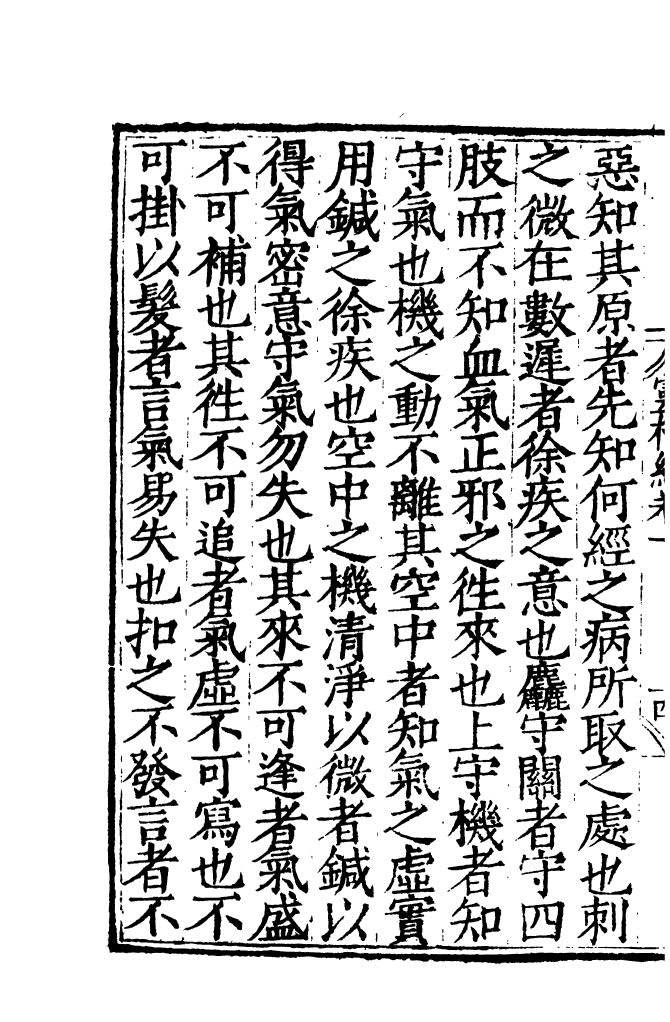 惡知其原者先知何經之病所取之處也刺
之微在數遲者徐疾之意也麤守關者守四
肢而不知血氣正邪之徃來也上守機者知
守氣也機之動不離其空中者知氣之虛實
用鍼之徐疾也空中之機清淨以微者鍼以
得氣密意守氣勿失也其來不可逢者氣盛
不可補也其徃不可追者氣虛不可寫也不
可掛以髮者言氣易失也扣之不發言者不